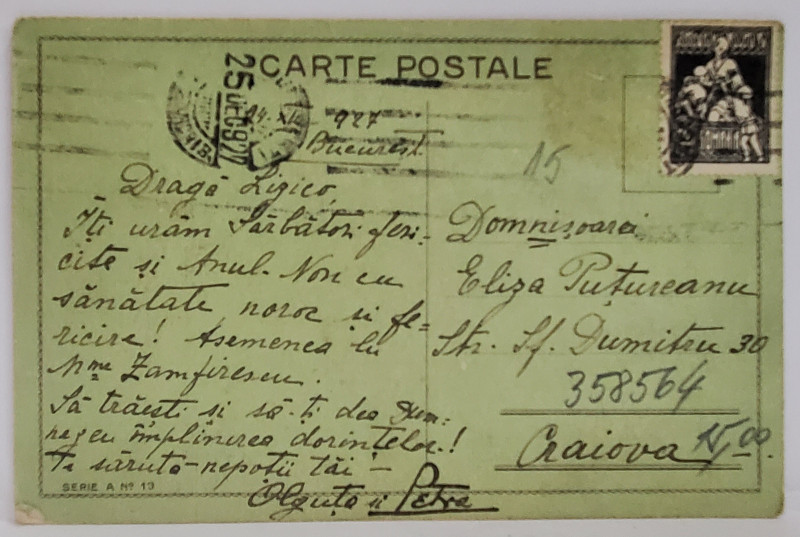 CARTE POSTALE
25 DEC 927
24. XII 927
Bucureşti
15
ROMANIA
Dragă Lizico,
Îţi urăm Sărbători feri-
cite şi Anul-Nou cu
sănătate noroc şi fe=
ricire! Asemenea lui
Mme Zamfirescu.
Să trăeşti şi să-ţi dea Dum=
nezeu împlinirea dorinţelor!
Te sărută-nepoţii tăi -
Olguţa şi Petre
SERIE A Nº 13
Domnişoarei
Eliza Puţureanu
Str. Sf. Dumitru 30
358564
Craiova
15,00